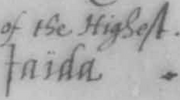 of the Highest.
Jaida